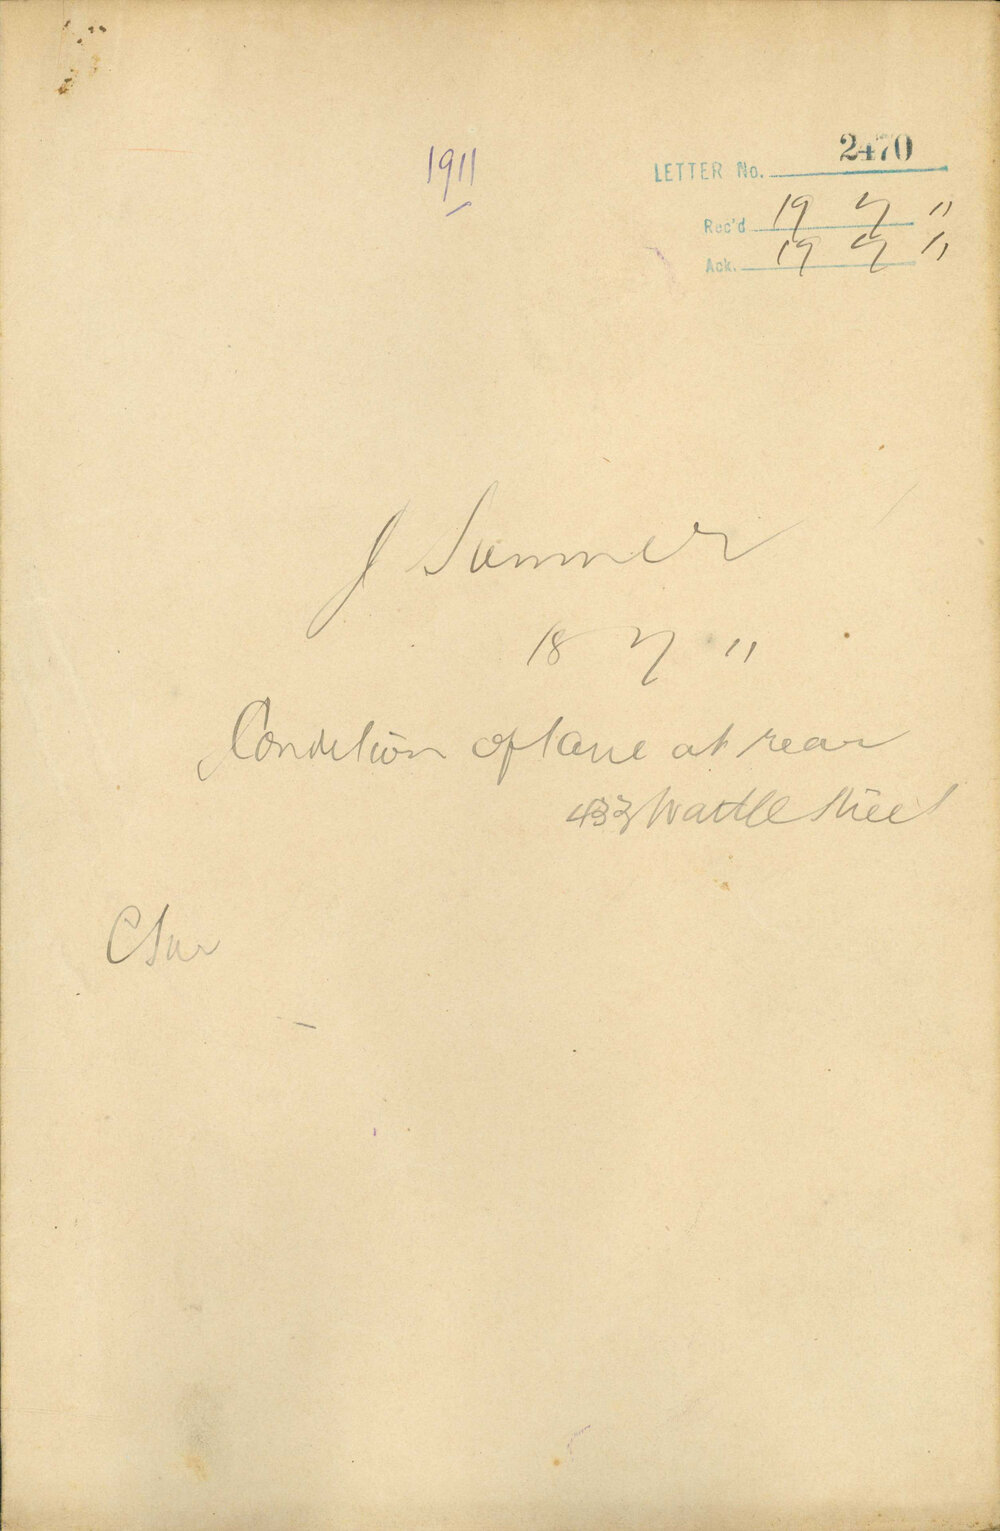 1911
LETTER No. 2470
Rec'd 19 7 11
Ack. 19 7 11
J Sumner
18 7 11
Condition of lane at rear
433 Wattle Street
C Sur